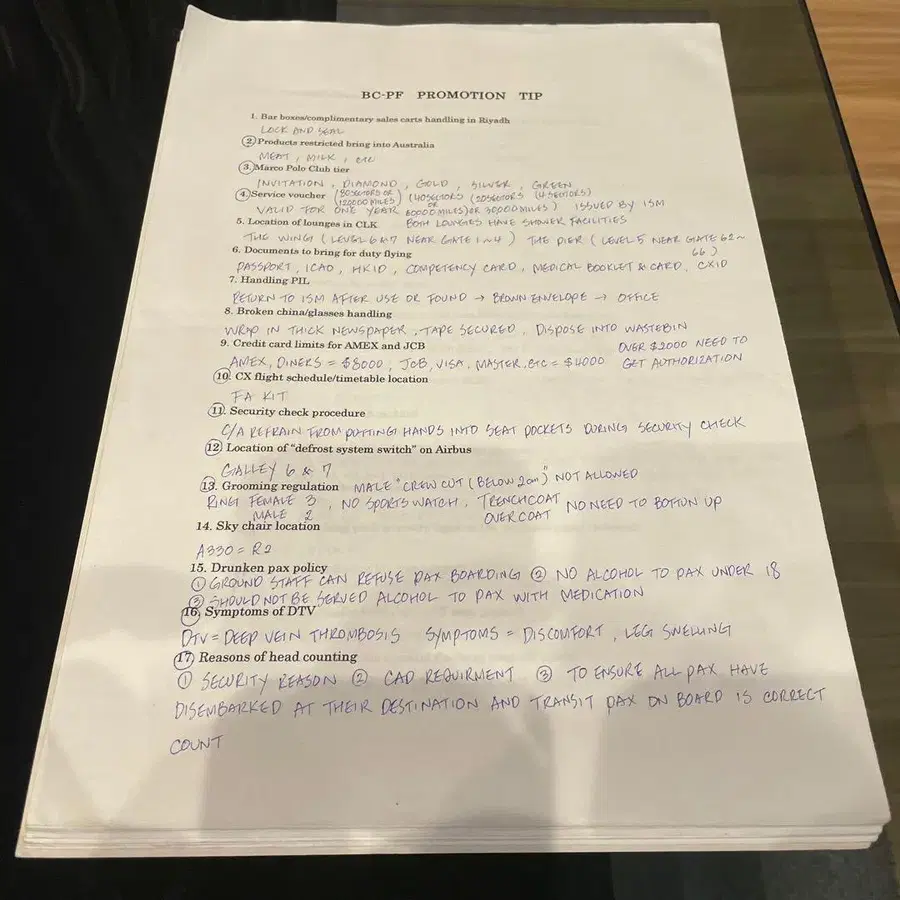 BC-PF PROMOTION TIP
1. Bar boxes/complimentary sales carts handling in Riyadh
LOCK AND SEAL
2. Products restricted bring into Australia
MEAT, MILK, ETC
3. Marco Polo Club tier
INVITATION, DIAMOND, GOLD, SILVER, GREEN
4. Service voucher (80SECTORS OR 120000 MILES) (40SECTORS OR 60000 MILES) (20SECTORS OR 30000 MILES) (4 SECTORS) ISSUED BY ISM
VALID FOR ONE YEAR
5. Location of lounges in CLK BOTH LOUNGES HAVE SHOWER FACILITIES
THE WING (LEVEL 6 & 7 NEAR GATE 1~4) THE PIER (LEVEL 5 NEAR GATE 62~66.)
6. Documents to bring for duty flying
PASSPORT, ICAO, HKID, COMPETENCY CARD, MEDICAL BOOKLET & CARD, CXID
7. Handling PIL
RETURN TO ISM AFTER USE OR FOUND → BROWN ENVELOPE → OFFICE
8. Broken china/glasses handling
WRAP IN THICK NEWSPAPER, TAPE SECURED, DISPOSE INTO WASTEBIN
9. Credit card limits for AMEX and JCB OVER $2000 NEED TO
AMEX, DINERS = $8000, JCB, VISA, MASTER, ETC = $4000 GET AUTHORIZATION
10. CX flight schedule/timetable location
FA KIT
11. Security check procedure
C/A REFRAIN FROM PUTTING HANDS INTO SEAT POCKETS DURING SECURITY CHECK
12. Location of "defrost system switch" on Airbus
GALLEY 6 & 7
13. Grooming regulation MALE "CREW CUT (BELOW 2cm)" NOT ALLOWED
RING: FEMALE 3, NO SPORTS WATCH, TRENCHCOAT NO NEED TO BOTTON UP
MALE 2 OVERCOAT
14. Sky chair location
A330 = R2
15. Drunken pax policy
① GROUND STAFF CAN REFUSE PAX BOARDING ② NO ALCOHOL TO PAX UNDER 18
③ SHOULD NOT BE SERVED ALCOHOL TO PAX WITH MEDICATION
16. Symptoms of DTV
DTV = DEEP VEIN THROMBOSIS SYMPTOMS = DISCOMFORT, LEG SWELLING
17. Reasons of head counting
① SECURITY REASON ② CAD REQUIRMENT ③ TO ENSURE ALL PAX HAVE
DISEMBARKED AT THEIR DESTINATION AND TRANSIT PAX ON BOARD IS CORRECT
COUNT